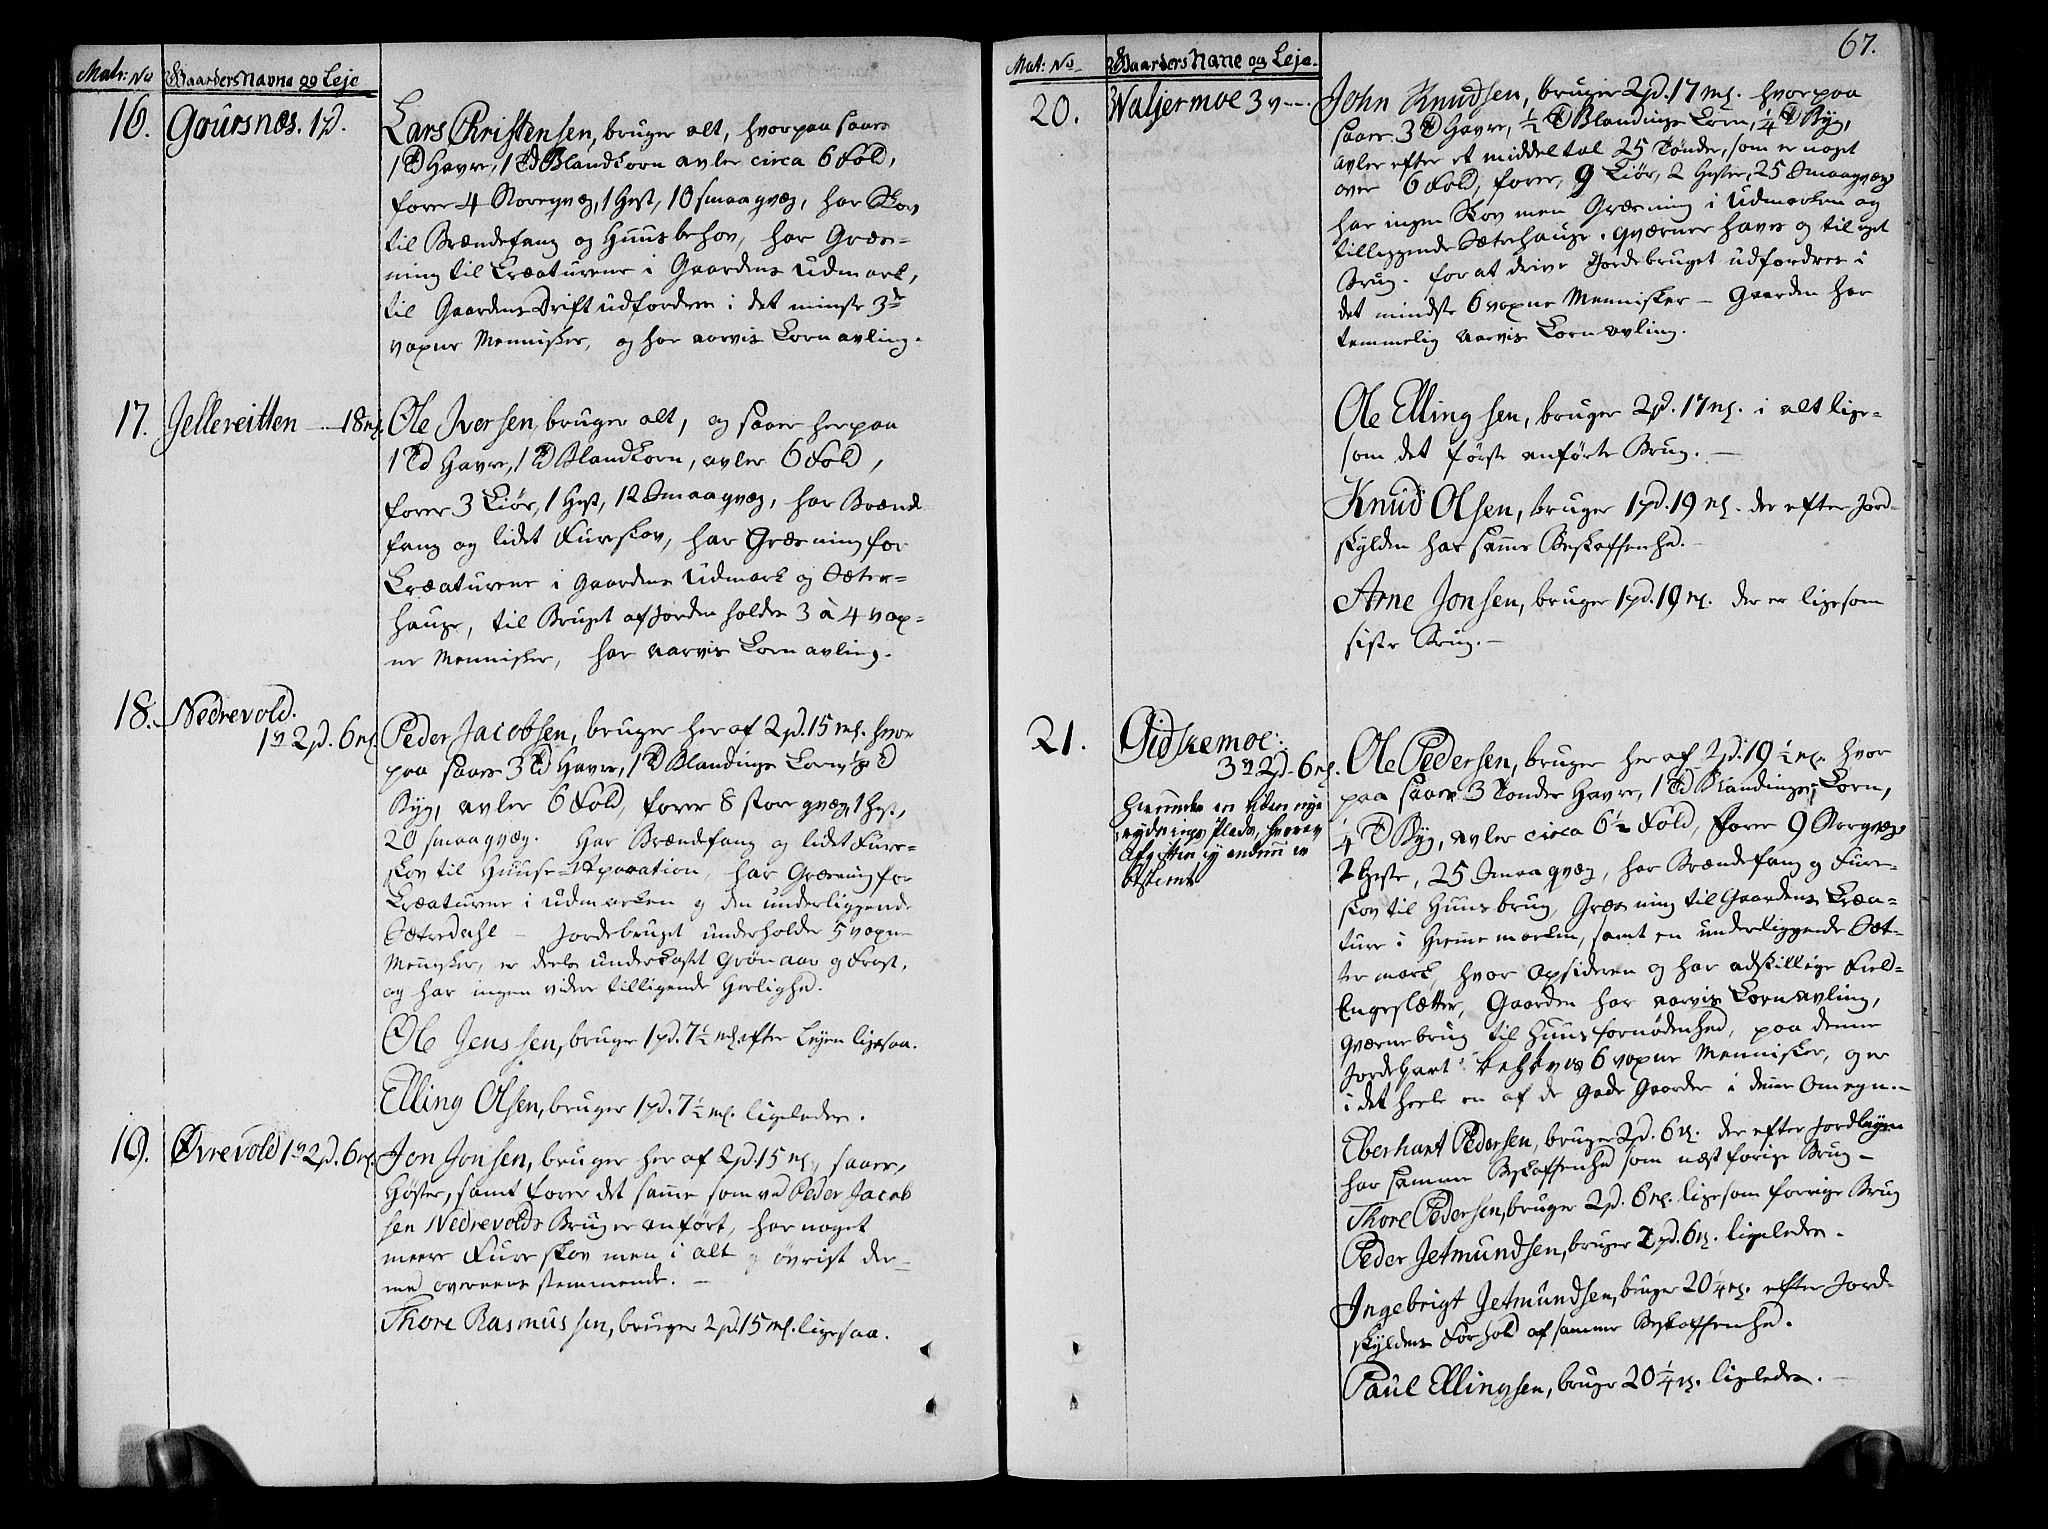 Matr: No Gaarders Navne og Leje
16. Goursnæs. 1 pd.
Lars Christensen, bruger alt, hvorpaa saaes
1 Td Havre, 1 Td Blandkorn avler circa 6 Fold,
foder 4 Storeqvæg, 1 Hest, 10 smaaqvæg, har Skov
til Brændefang og Huusbehov, har Græs-
ning til Creaturene i Gaardens Udmark,
til Gaardens Drift udfordres i det minste 3de
voxne Mennisker, og har aarvis Kornavling.
17. Jellereitten 18 mk
Ole Iversen, bruger alt, og saaer herpaa
1 Td Havre, 1 Td Blandkorn, avler 6 Fold,
foder 3 Kiør, 1 Hest, 12 Smaaqvæg, har Brænd
fang og lidet Furuskov, har Græsning for
Creaturene i Gaardens Udmark og Sæter-
hauge, til Bruget af Jorden holdes 3 à 4 vox-
ne Mennisker, har aarvis Kornavling.
18. Nedrevold.
1 v 2 pd. 6 mk.
Peder Jacobsen, bruger her af 2 pd. 15 mk. hvor
paa saaes 3 Td Havre, 1 Td Blandings Korn, Td
Byg, avler 6 Fold, foder 8 store qvæg, 1 Hest,
20 smaaqvæg. Har Brændefang og lidet Fure-
skov til Huuse-Reparation, har Græsning for
Creaturene i Udmarken og den underliggende
Sætredahl - Jordebruget underholder 5 voxne
Mennisker, er deels underkast Grønaar og Frost,
og har ingen videre tilligende Herlighed.
Ole Jenssen, bruger 1 pd. 7½ mk. efter Lejen ligesaa.
Elling Olsen, bruger 1 pd. 7½ mk. ligeledes.
19. Øvrevold 1 v 2 pd. 6 mk.
Jon Jonsen, bruger her af 2 pd 15 mk, saaer,
høster, samt foder det samme som ved Peder Jacob
sen Nedrevolds Brug er anført, har noget
meere Fureskov men i alt øvrigt der-
med overeensstemmende. -
Thore Rasmussen, bruger 2 pd. 15 mk. ligesaa.
67.
Mat: No Gaarders Navne og Leje.
20. Waljermoe 3 v
John Knudsen, bruger 2 pd. 17 mk. hvorpaa
saaes 3 Td Havre, ½ Td Blandings Korn, ¼ Td Byg,
avler efter et middeltal 25 Tønder, som er noget
over 6 Fold, foder, 9 Kiør, 2 Hester, 25 Smaaqvæg
har ingen Skov men Græsning i Udmarken og
tilliggende Sæterhauge. Qværner haves og til eget
Brug. for at drive Jordebruget udfordres i
det mindste 6 voxne Mennisker - Gaarden har
temmelig aarvis Kornavling.
Ole Ellingsen, bruger 2 pd. 17 mk. i alt lige-
som det første anførte Brug. -
Knud Olsen, bruger 1 pd. 19 mk. der efter Jord-
skylden har samme Beskaffenhed. -
Arne Jonsen, bruger 1 pd. 19 mk. der er ligesom
sidste Brug. -
21. Gidskemoe.
3 v 2 pd. 6 mk.
Ole Pedersen, bruger her af 2 pd. 19½ mk. hvor
paa saaes 3 Tønder Havre, 1 Td Blandings Korn,
¼ Td Byg, avler circa 6½ Fold, foder 9 Storqvæg
2 Heste, 25 Smaaqvæg, har Brændefang og Fure-
skov til Huusbrug, Græsning til Gaardens Crea-
ture i Hiememarken, samt en underliggende Sæt-
termark, hvor opsideren og har adskillige Field-
Engeslætter, Gaarden har aarvis Kornavling,
Qværnebrug til Huusfornødenhed, paa denne
Jordepart behøves 6 voxne Mennisker, og er
i det heele en af de Gode Gaarder i denne Omegn. -
Eberhart Pedersen, bruger 2 pd. 6 mk. der efter Jordlejen
har samme Beskaffenhed som næst forige Brug -
Thore Pedersen, bruger 2 pd. 6 mk. ligesom forrige Brug
Peder Jetmundsen, bruger 2 pd. 6 mk. ligeledes.
Ingebrigt Jetmundsen, bruger 20¼ mk. efter Jord-
skyldens Forhold af samme Beskaffenhed.
Paul Ellingsen, bruger 20¼ mk. ligeledes. -